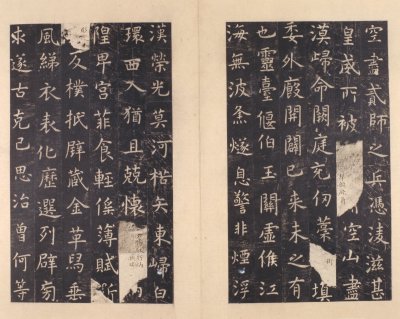 空書貳師之兵憑淩滋甚
皇威所被空山盡
漠歸命闕庭充仞藁街填
委外廄開闢已來未之有
也靈臺偃伯玉關虛候江
海無波燧息警非煙浮
漢榮光莫河楛矢東歸白
環西入猶且兢懷
隍卑宮菲食輕徭薄賦斲
反樸抵璧藏金革舄垂
風綈衣表化歷選列辟旁
求遂古克己思治曾何等